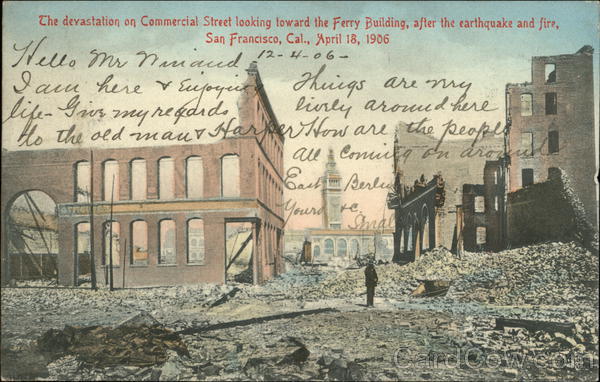 The devastation on Commercial Street looking toward the Ferry Building, after the earthquake and fire,
San Francisco, Cal., April 18, 1906
12-4-06-
Hello Mr Winand
I am here & Enjoying
life- Give my regards
to the old man & Harper
Things are my
lively around here
How are the people
All coming on around
East Berlin
Yours &c.
CardCow.com